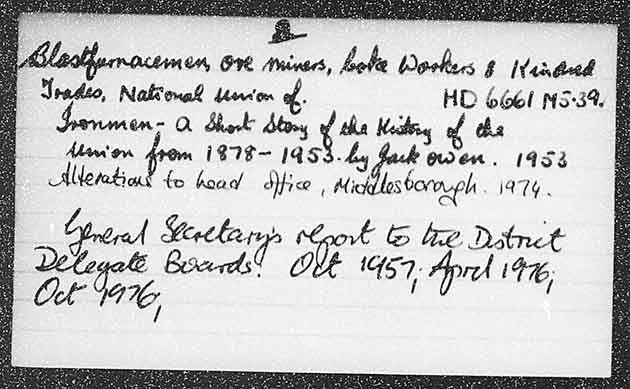 Blastfurnacemen, ore miners, Coke Workers & Kindred
Trades, National Union of. HD 6661 M5.39.
Ironmen - a Short Story of the History of the
Union from 1878 - 1953. by Jack Owen. 1953
Alterations to head office, Middlesborough. 1974.
General Secretary's report to the District
Delegate Boards. Oct 1957; April 1976;
Oct 1976;